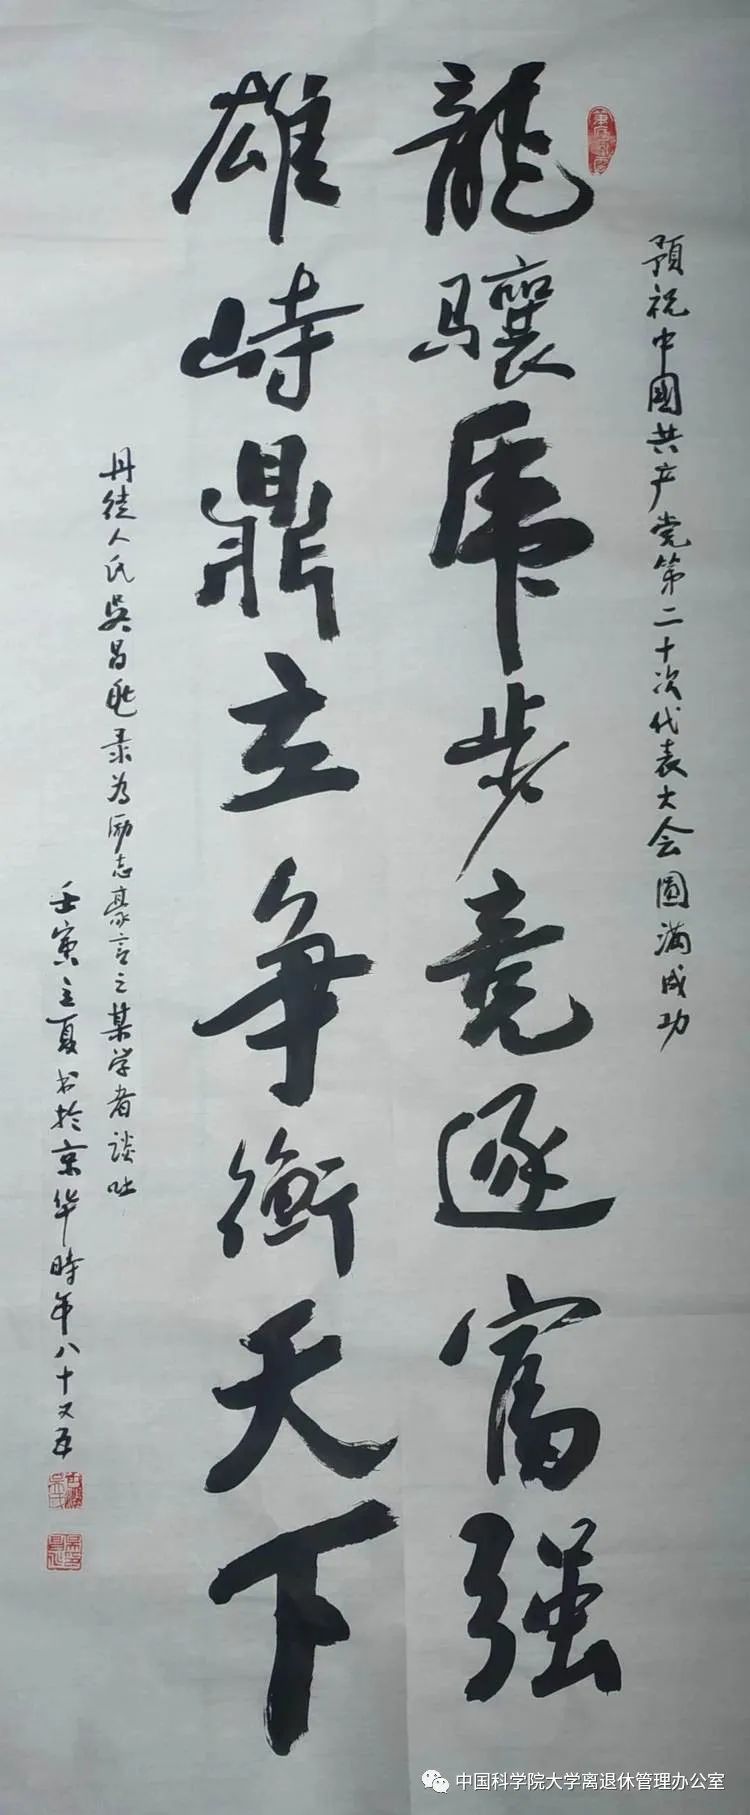 預祝中國共产党第二十次代表大会圓满成功
龍驤虎步竞逐富强
雄峙鼎立争衡天下
丹徒人氏吳昌录为励志豪言之某学者谈吐
壬寅立夏书於京华時年八十又五
中国科学院大学离退休管理办公室